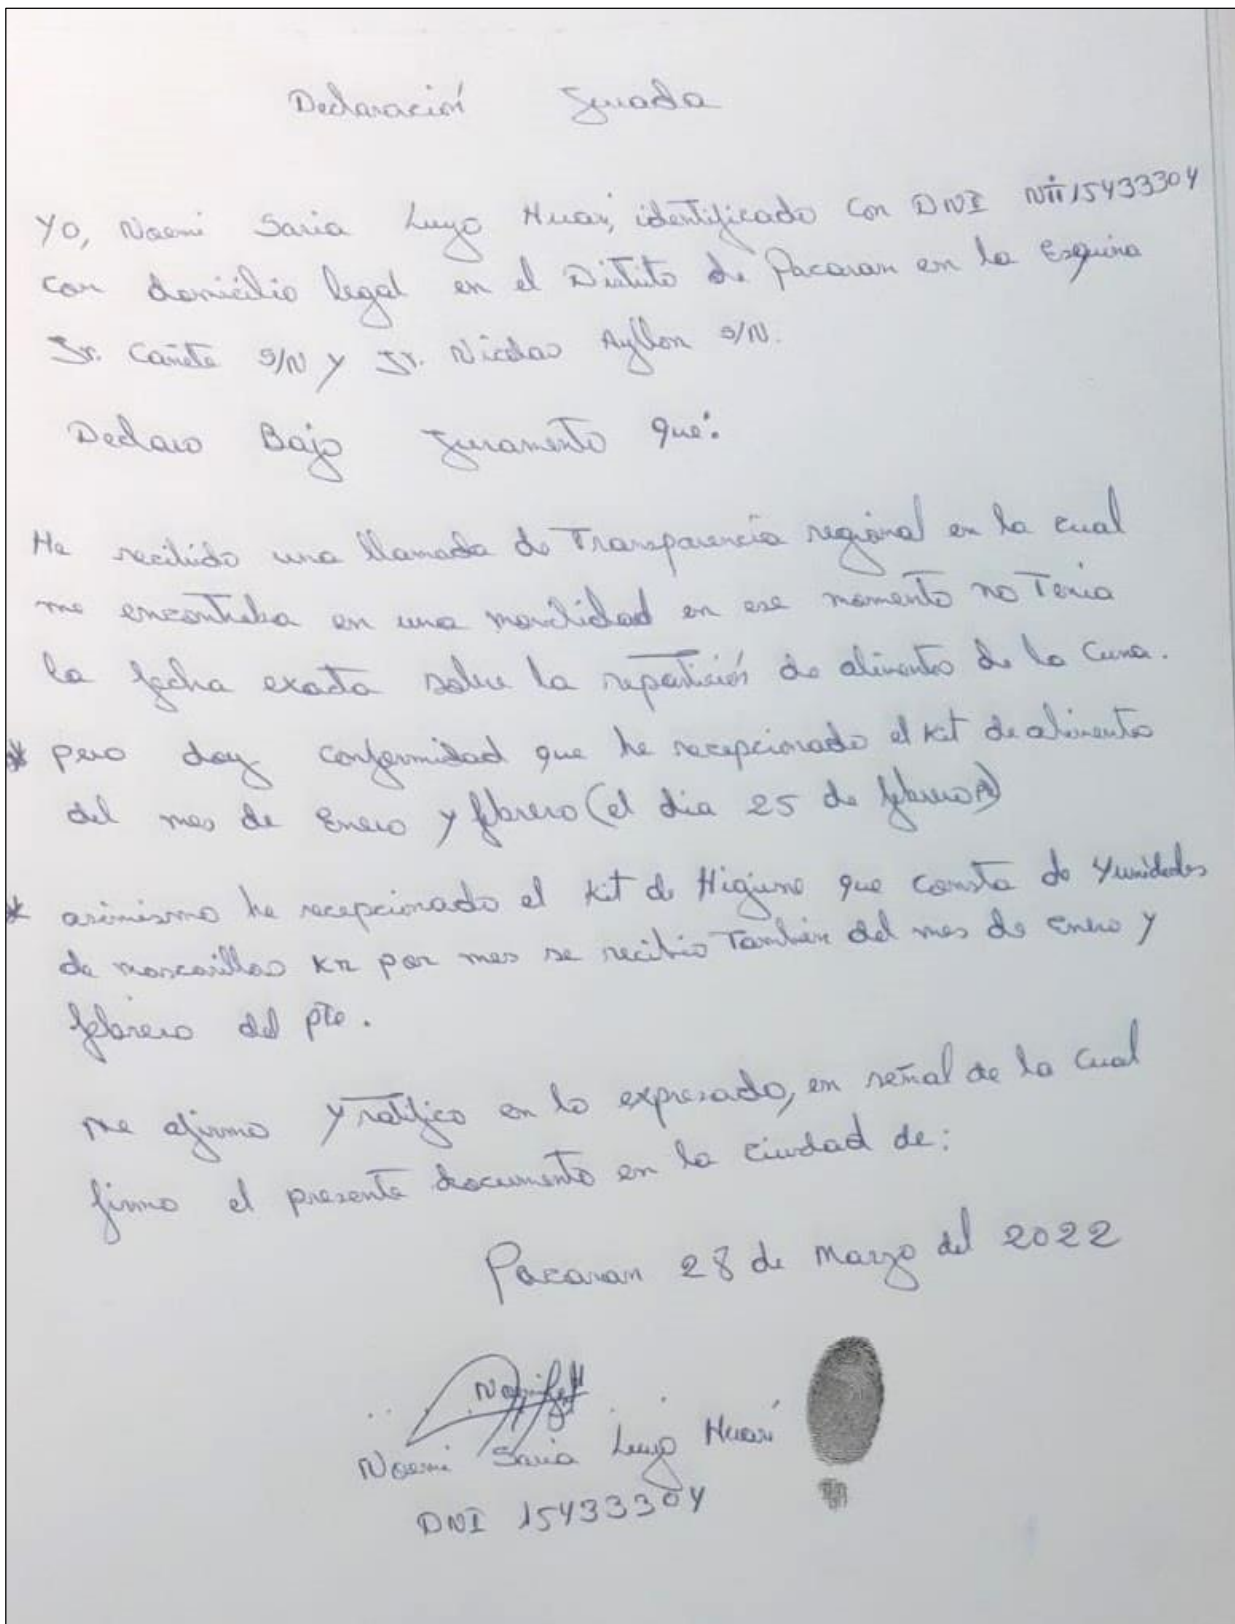 Declaración Jurada
Yo, Noemi Saria Luyo Huari, identificado con DNI N° 15433304
con domicilio legal en el Distito de Pacaran en la Esquina
Jr. Cañete S/N y Jr. Nicolas Ayllon S/N.
Declaro Bajo Juramento que:
He recibido una llamada de Transparencia regional en la cual
me encontraba en una en ese momento no Tenia
la fecha exacta sobre la repartición de alimentos de la Cuna.
* pero doy conformidad que he recepcionado el kit de alimentos
del mes de Enero y febrero (el dia 25 de febrero)
* asimismo he recepcionado el kit de Higiene que consta de 4 unidades
de mascarillas KN por mes se recibio Tambien del mes de Enero y
febrero del pte.
me afirmo y ratifico en lo expresado, en señal de la cual
firmo el presente documento en la ciudad de:
Pacaran 28 de Marzo del 2022
Noemi Saria Luyo Huari
DNI 15433304